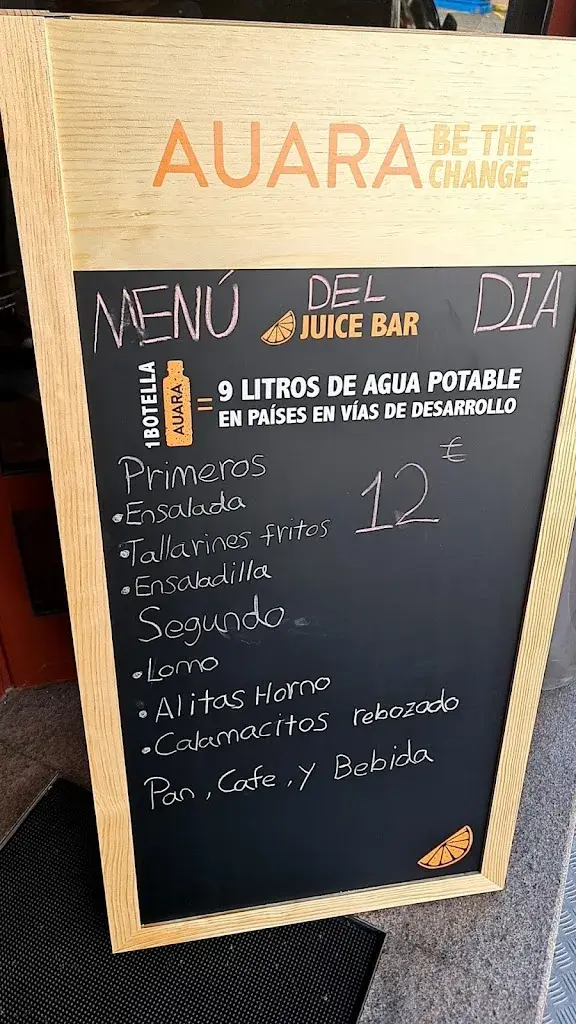 AUARA BE THE CHANGE
MENÚ DEL DIA
JUICE BAR
1 BOTELLA AUARA = 9 LITROS DE AGUA POTABLE
EN PAÍSES EN VÍAS DE DESARROLLO
Primeros
12 €
•Ensalada
•Tallarines fritos
•Ensaladilla
Segundo
•Lomo
•Alitas Horno
•Calamacitos rebozado
Pan, Cafe, y Bebida